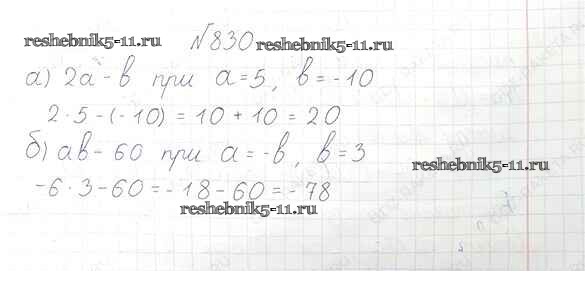 reshebnik5-11.ru №830 reshebnik5-11.ru
а) 2a - b при a = 5, b = -10
2·5 - (-10) = 10 + 10 = 20
б) ab - 60 при a = -b, b = 3
reshebnik5-11.ru
-6·3 - 60 = -18 - 60 = -78
reshebnik5-11.ru